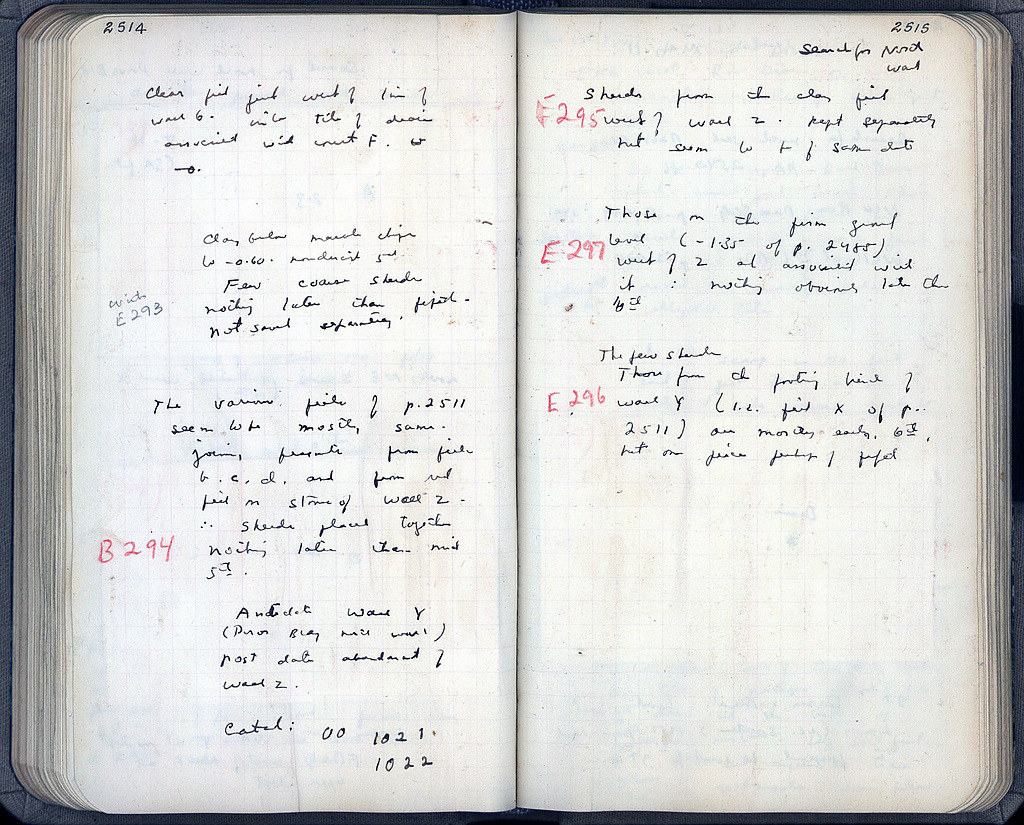 2514
Clear fill just west of line of
wall b. under tile of drain
associated with court F. to
-0.
Clay below marble chips
to -0.60. nondescript 5th
Few coarse sherds
nothing later than
Not saved separately.
with
E 293
The various fills of p. 2511
seem to be mostly same.
joining fragments from fills
b. c. d. and from red
fill on stones of wall 2 -
∴ sherds placed together
B 294
nothing later than mid
5th.
Antedate wall Y
(Poros wall)
post date abandonment of
wall 2.
Catal: 00 1021.
1022
2515
Search for North
wall
Sherds from the clay fill
E 295 west of wall 2. kept separately
but seem to be of same date
Those on the firm ground
level (-1.35 of p. 2485)
E 297
west of 2 and associated with
it : nothing obviously later than
6th
The few sherds
Those from the footing trench of
E 296
wall Y (i.e. fill X of p.
2511) are mostly early 6th,
but one piece perhaps of